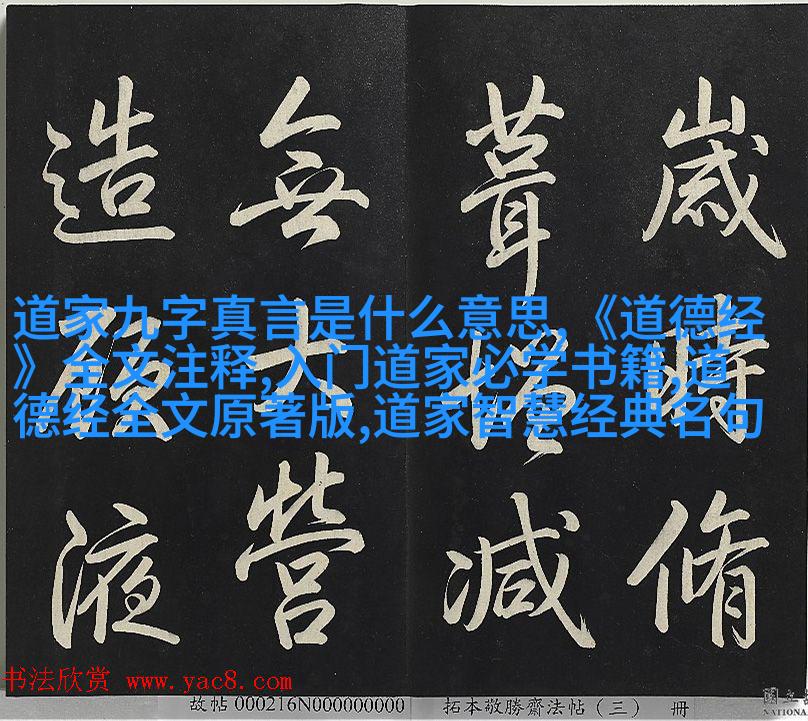 歲時脩
葺增減
無大營
造液
道家九字真言是什么意思,《道德经
》全文注释,入门道家必学书籍,道
德经全文原著版,道家智慧经典名句
书法欣赏 www.yac8.com
故帖000216N000000000 拓本敬勝齋法帖（三） 册
國立
NATIONA